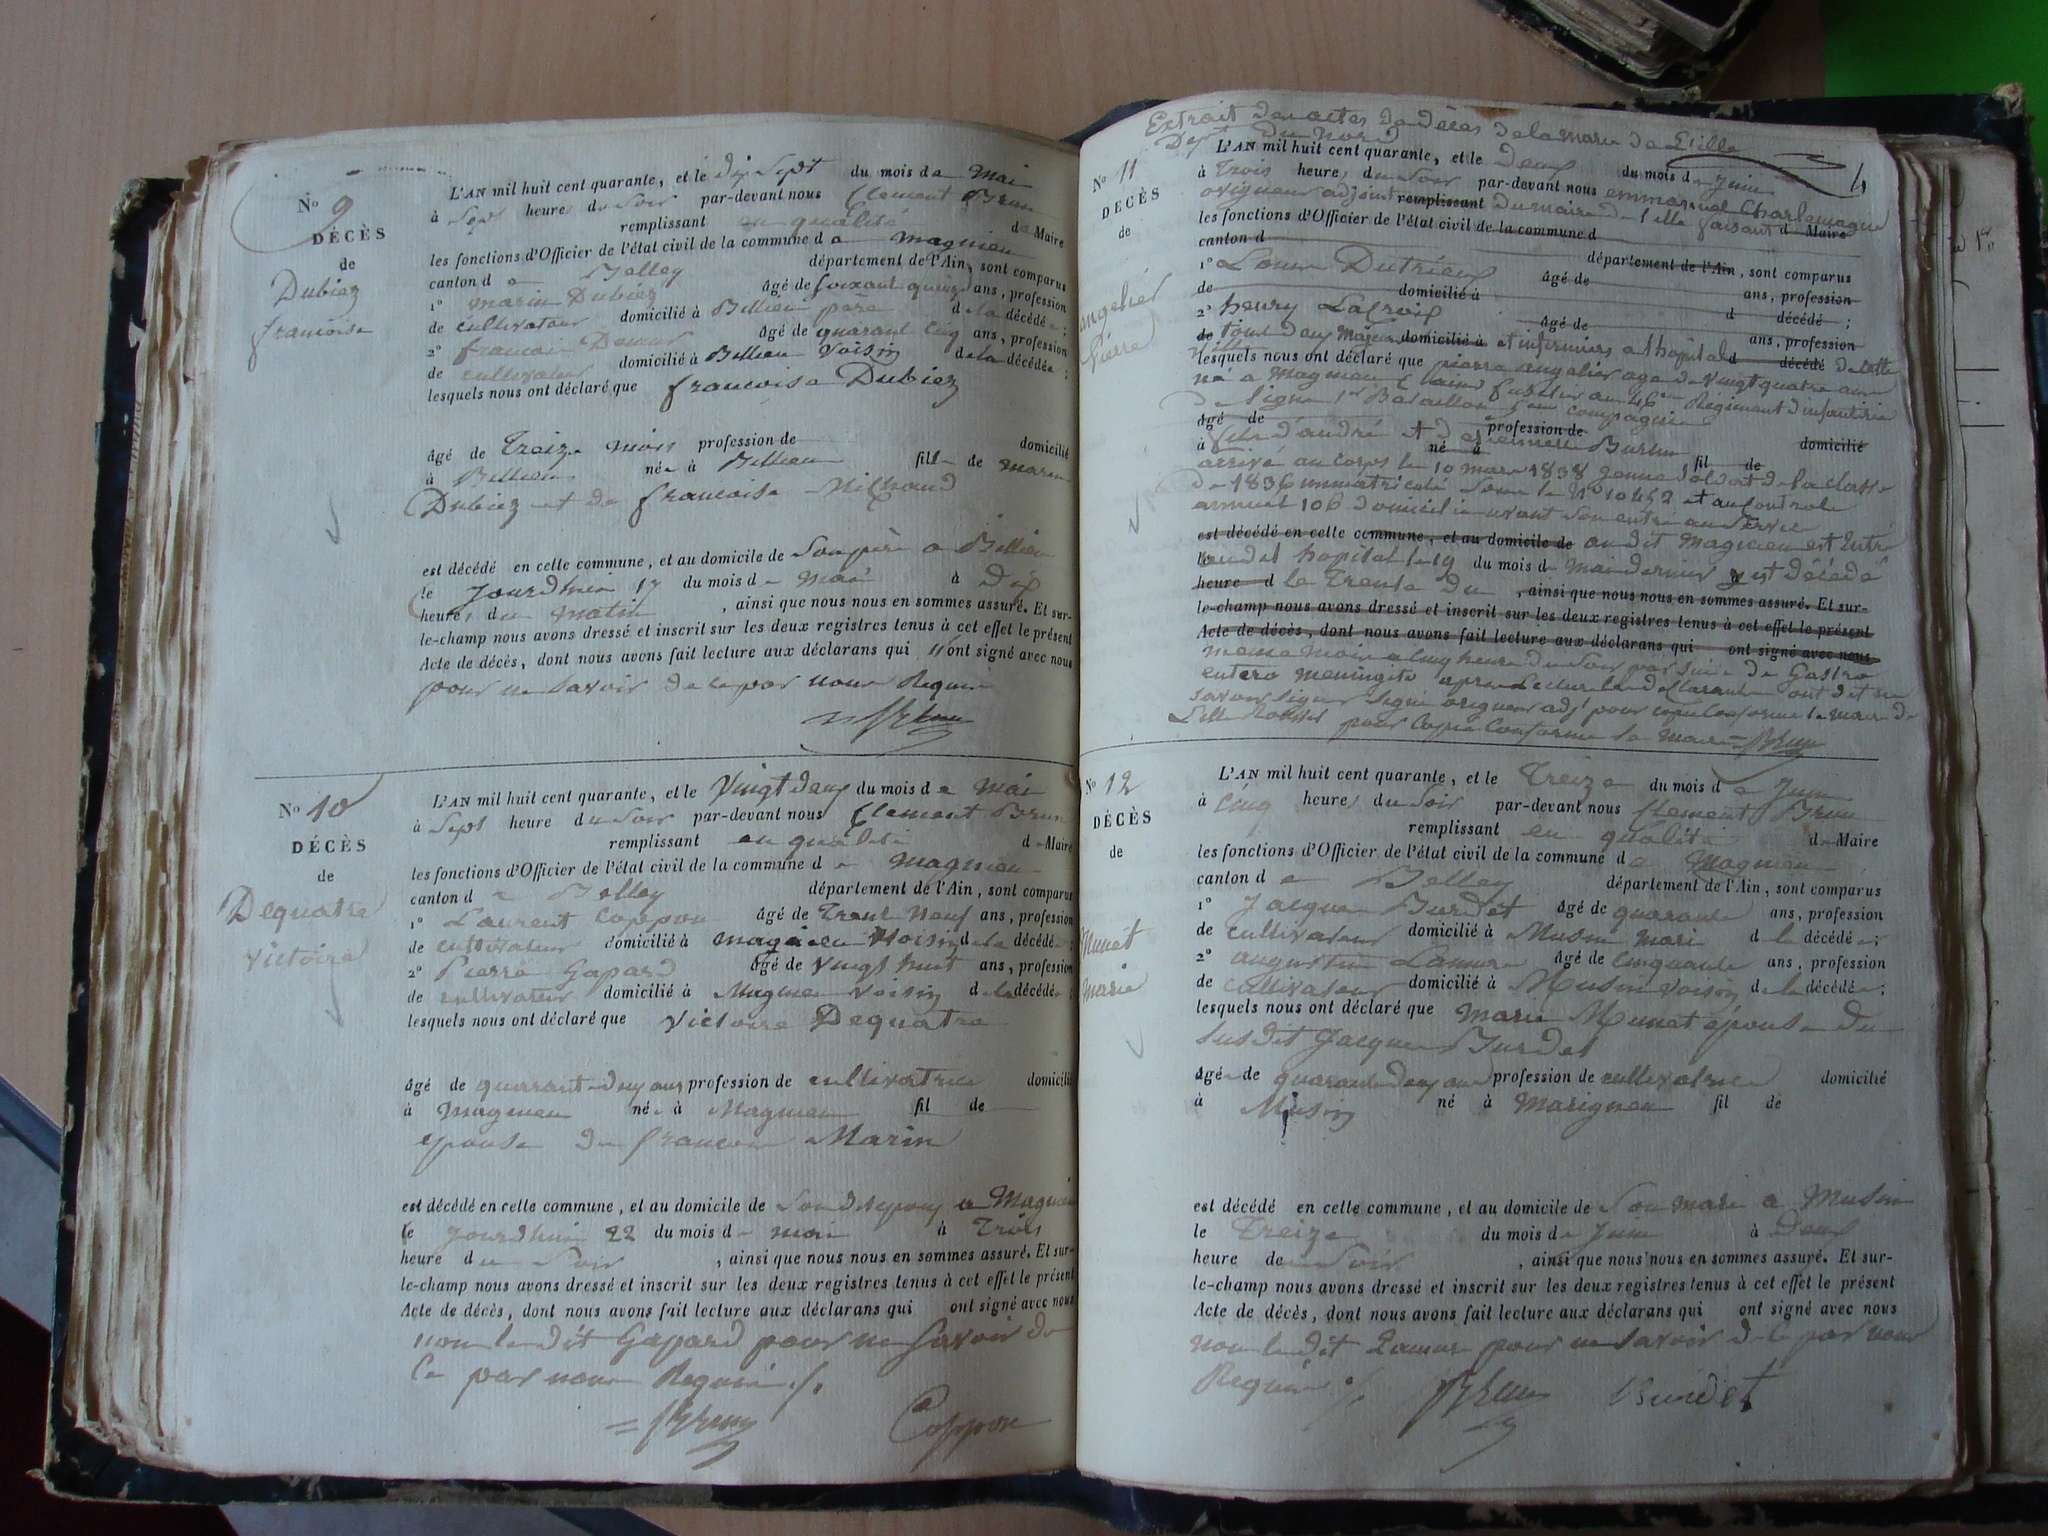 N° 9
DÉCÈS
de
Dubiez
francoise
L'AN mil huit cent quarante, et le dix Sept du mois de Mai
à Sept heures du Soir par-devant nous Clement Brun
remplissant en qualité de Maire
les fonctions d'Officier de l'état civil de la commune de magnieu
canton de Belley département de l'Ain, sont comparus
1° marin Dubiez âgé de soixant quinze ans, profession
de cultivateur domicilié à Billieu père de la décédée ;
2° francois âgé de quarant cinq ans, profession
de cultivateur domicilié à Billieu voisin de la décédée ;
lesquels nous ont déclaré que francoise Dubiez
âgé de Treize mois profession de domicilié
à Billieu née à Billieu fille de marin
Dubiez et de francoise
est décédé en cette commune, et au domicile de Son père a Billieu
le Jourdhui 17 du mois de Mai à dix
heures du matin , ainsi que nous nous en sommes assuré. Et sur-
le-champ nous avons dressé et inscrit sur les deux registres tenus à cet effet le présent
Acte de décès, dont nous avons fait lecture aux déclarans qui n'ont signé avec nous
pour ne Savoir de ce par nous Requis
Brun
N° 10
DÉCÈS
de
Dequatre
victoire
L'AN mil huit cent quarante, et le Vingt deux du mois de Mai
à Sept heure du Soir par-devant nous Clement Brun
remplissant en qualité de Maire
les fonctions d'Officier de l'état civil de la commune de magnieu
canton de Belley département de l'Ain, sont comparus
1° Laurent Coppon âgé de Trent Neuf ans, profession
de cultivateur domicilié à magnieu Voisin de la décédée ;
2° Pierre Gapard âgé de vingt huit ans, profession
de cultivateur domicilié à Magnieu voisin de la décédée ;
lesquels nous ont déclaré que Victoire Dequatre
âgé de quarant deux ans profession de cultivatrice domicilié
à Magnieu née à Magnieu fil de
epouse de francois Marin
est décédé en cette commune, et au domicile de Son dit epoux a Magnieu
le Jourdhui 22 du mois de mai à Trois
heure du Soir , ainsi que nous nous en sommes assuré. Et sur-
le-champ nous avons dressé et inscrit sur les deux registres tenus à cet effet le présent
Acte de décès, dont nous avons fait lecture aux déclarans qui ont signé avec nous
non le dit Gapard pour ne Savoir de
Ce par nous Requis ./.
Brun Coppon
Extrait des actes de décès de la mairie de Lille
Dept du Nord
4
N° 11
DÉCÈS
de
angelier
Pierre
L'AN mil huit cent quarante, et le Deux du mois de Juin
à Trois heure, du Soir par-devant nous emmanuel Charlemagne
adjoint remplissant du maire de Lille faisant d Maire
les fonctions d'Officier de l'état civil de la commune d
canton d département de l'Ain, sont comparus
1° Louis Dutrieux âgé de ans, profession
de domicilié à d décédé ;
2° henry Lacroix âgé de ans, profession
de tous deux Majeurs domicilié à et infirmiers a lhopital d décédé de cette
ville
lesquels nous ont déclaré que pierre angelier age de vingt quatre ans
né a Magnieu fusilier au 46me Régiment d'infanterie
de ligne 1er Bataillon compagnie
âgé de profession de domicilié
à fils d'andré et d né à fil de
arrivé au corps le 10 mars 1838 Jeune Soldat de la classe
de 1836 immatriculé Sous le N° et au Controle
annuel 106 domicilié avant Son entré au Service
est décédé en cette commune, et au domicile de au dit Magnieu est Entré
audit hopital le 19 du mois de Mai dernier y est décédé
heure d le Trente du , ainsi que nous nous en sommes assuré. Et sur-
le-champ nous avons dressé et inscrit sur les deux registres tenus à cet effet le présent
Acte de décès, dont nous avons fait lecture aux déclarans qui ont signé avec nous
meme mois a Cinq heure du Soir par Suite de Gastro
entero meningite apres Lecture les declarants ont dit ne
savoir signer Signé adjt pour copie Conforme le maire de
Lille pour Copie Conforme le Maire Brun
N° 12
DÉCÈS
de
Munet
marie
L'AN mil huit cent quarante, et le Treize du mois de Juin
à Cinq heures du Soir par-devant nous Clement Brun
remplissant en qualité de Maire
les fonctions d'Officier de l'état civil de la commune de Magnieu
canton de Belley département de l'Ain, sont comparus
1° Jacques Burdet âgé de quarante ans, profession
de cultivateur domicilié à Musin mari de la décédée ;
2° augustin Lamure âgé de cinquante ans, profession
de cultivateur domicilié à Musin voisin de la décédée ;
lesquels nous ont déclaré que Marie Munet épouse du
Susdit Jacques Burdet
âgée de quarante deux ans profession de cultivatrice domicilié
à Musin né à Marignieu fil de
est décédé en cette commune, et au domicile de Son mari a Musin
le Treize du mois de Juin à Deux
heure de Soir , ainsi que nous nous en sommes assuré. Et sur-
le-champ nous avons dressé et inscrit sur les deux registres tenus à cet effet le présent
Acte de décès, dont nous avons fait lecture aux déclarans qui ont signé avec nous
non le dit Lamure pour ne Savoir de ce par nous
Requis ./. Brun Burdet